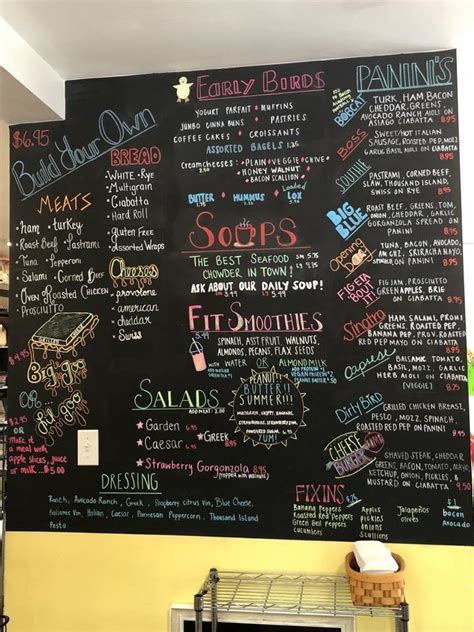 $6.95
Build Your Own
MEATS
• ham • turkey
• Roast Beef • Pastrami
• Tuna • Pepperoni
• Salami • Corned Beef
• Oven Roasted Chicken
• Prosciutto
BREAD
• WHITE • Rye
• Multigrain
• Ciabatta
• Hard Roll
• Gluten Free
• Assorted Wraps
Cheeses
• provolone
• american
• cheddar
• Swiss
Big goo
Lil goo
or
Make it
a meal with
apple slices, juice
or milk ... $2.00
EARLY BIRDS
YOGURT PARFAIT • MUFFINS
JUMBO CINNA BUNS • PASTRIES
COFFEE CAKES • CROISSANTS
ASSORTED BAGELS
Creamcheeses: • PLAIN • VEGGIE • CHIVE
• HONEY WALNUT
• BACON SCALLION
BUTTER • HUMMUS • Loaded LOX
SOUPS
THE BEST SEAFOOD
CHOWDER IN TOWN!
SM 5.75
ASK ABOUT OUR DAILY SOUP!
FIT SMOOTHIES
5.49
SPINACH, ASST FRUIT, WALNUTS,
ALMONDS, PECANS, FLAX SEEDS
WITH WATER OR ALMONDMILK
PEANUT!!
BUTTER!!
SUMMER!!!
YUM!
SALADS
ADD MEAT
• Garden
• Caesar • GREEK
• Strawberry Gorgonzola
(topped with walnuts)
8.95
DRESSING
Ranch, Avocado Ranch, Greek, Raspberry citrus Vin, Blue Cheese,
Balsamic Vin, Italian, Caesar, Parmesan Peppercorn, Thousand Island
Pesto
PANINI'S
BOBCAT
TURK, HAM, BACON
CHEDDAR, GREENS,
AVOCADO RANCH AIOLI ON
ASIAGO CIABATTA 8.95
BOSS
SWEET/HOT ITALIAN
SAUSAGE, ROASTED PEP, MOZZ
GARLIC BASIL AIOLI ON CIABATTA
8.95
SOUTHIE
PASTRAMI, CORNED BEEF,
SLAW, THOUSAND ISLAND,
SWISS ON RYE
9.95
BIG BLUE
ROAST BEEF, GREENS, TOM,
ONION, CHEDDAR, GARLIC
GORGONZOLA SPREAD ON
PANINI
Opening Day
TUNA, BACON, AVOCADO,
AM CHZ, SRIRACHA MAYO,
ON SPINACH
FIG ETA BOUT IT
FIG JAM, PROSCIUTTO
GREEN APPLES, BRIE
ON CIABATTA
8.95
Sinatra
HAM, SALAMI, PROV,
GREENS, ROASTED PEP,
BANANA PEP, ROASTED
PEPPERS ON PANINI
Caprese
BALSAMIC TOMATO,
BASIL, MOZZ, GARLIC
HERB AIOLI ON CIABATTA
Dirty Bird
GRILLED CHICKEN BREAST,
PESTO, MOZZ, SPINACH,
ROASTED RED PEP ON PANINI
CHEESE BURGER
SHAVED STEAK, CHEDDAR
GREENS, BACON, TOMATO,
MAYO, KETCHUP,
PICKLES, &
MUSTARD ON CIABATTA
FIXINS
Banana Peppers
Roasted Red Peppers
Green Bell Peppers
Cucumbers
Apples
pickles
onions
Scallions
Jalapeños
olives